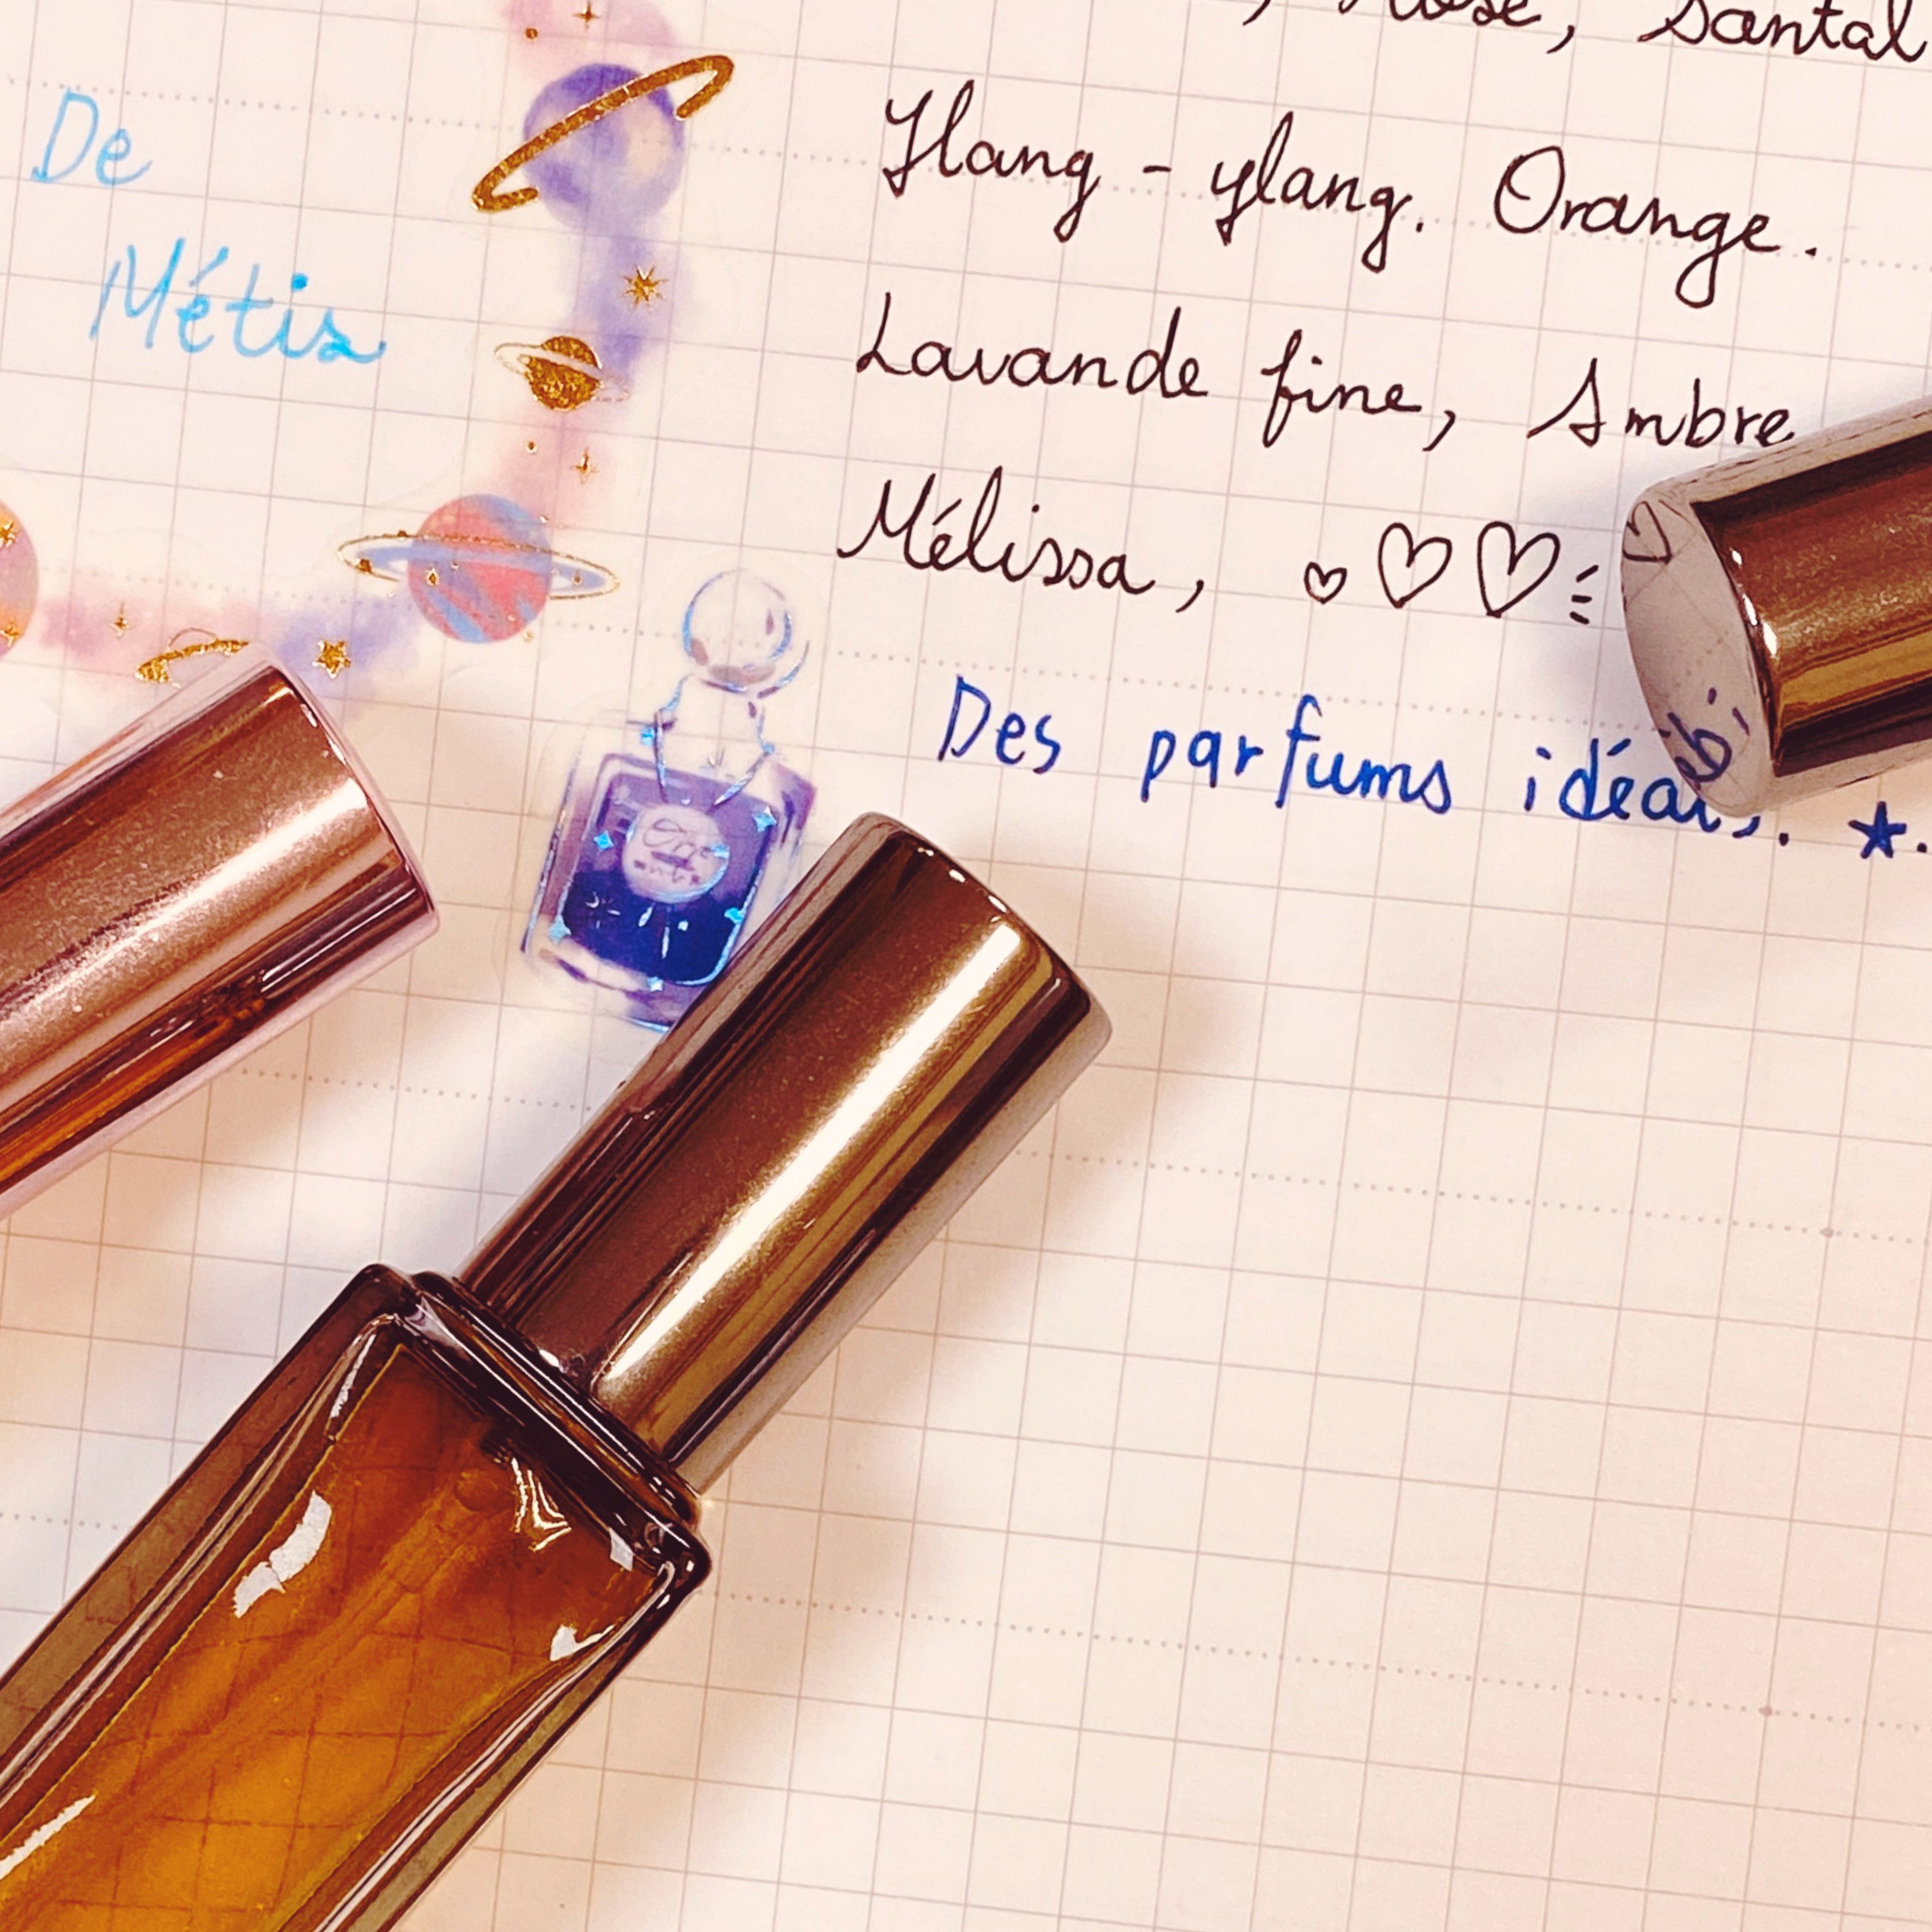 De
Métis
, Rose, Santal
Ylang - ylang. Orange.
Lavande fine, Ambre
Mélissa,
Des parfums idéals.